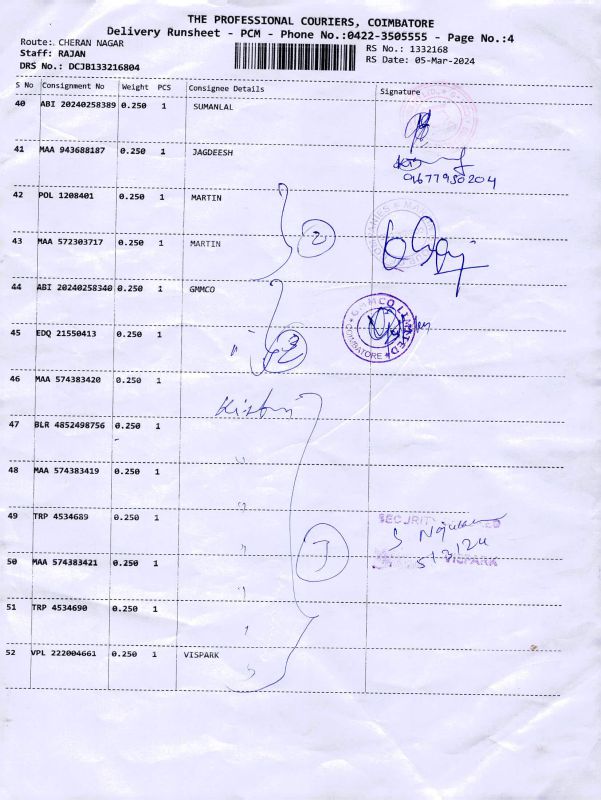 THE PROFESSIONAL COURIERS, COIMBATORE
Delivery Runsheet - PCM - Phone No.:0422-3505555 - Page No.:4
Route:. CHERAN NAGAR
RS No.: 1332168
Staff: RAJAN
RS Date: 05-Mar-2024
DRS No.: DCJB133216804
S No Consignment No Weight PCS Consignee Details Signature
40 ABI 20240258389 0.250 1 SUMANLAL
41 MAA 943688187 0.250 1 JAGDEESH
9677950204
42 POL 1208401 0.250 1 MARTIN
2
43 MAA 572303717 0.250 1 MARTIN
44 ABI 20240258340 0.250 1 GMMCO
GMMCO LIMITED
COIMBATORE
45 EDQ 21550413 0.250 1
2
46 MAA 574383420 0.250 1
47 BLR 4852498756 0.250 1
48 MAA 574383419 0.250 1
49 TRP 4534689 0.250 1
SECURITY
5/3/24
50 MAA 574383421 0.250 1
7
VISPARK
51 TRP 4534690 0.250 1
52 VPL 222004661 0.250 1 VISPARK